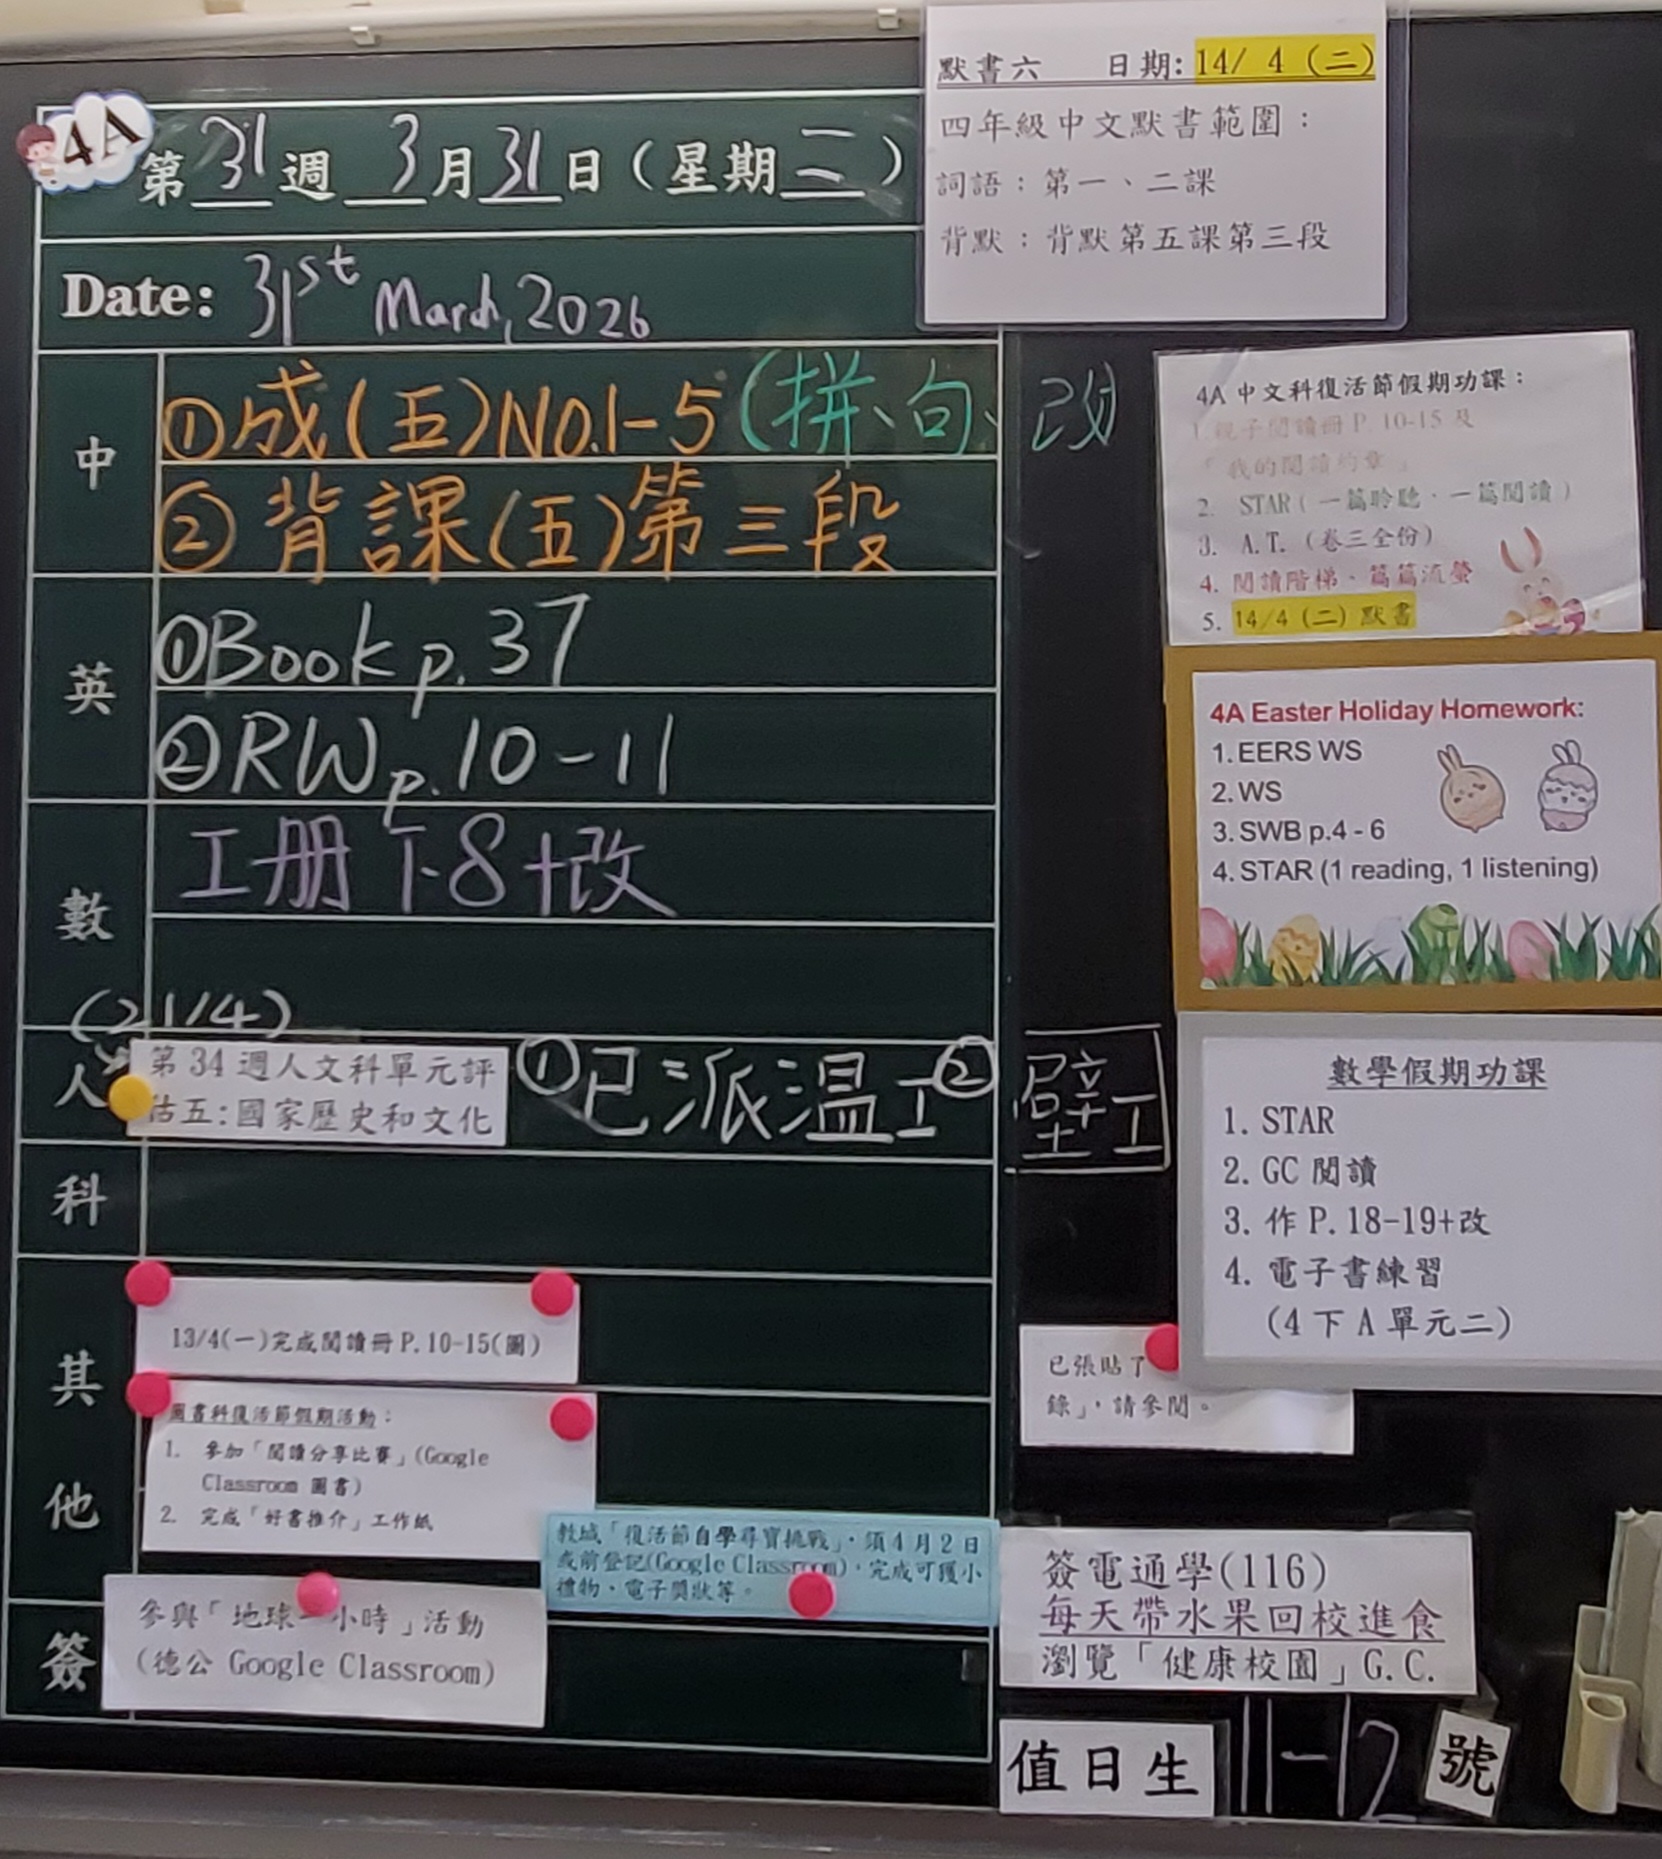 4A
第 31 週 3 月 31 日（星期二）
Date: 31st March, 2026
中
①成（五）NO.1-5（拼、句、改
②背課（五）第三段
英
①Book p.37
②RW p.10-11
數
工冊下-8+改
(21/4)
人
第34週人文科單元評
估五:國家歷史和文化
①已派温工②壁工
科
其
他
13/4(一)完成閱讀冊P.10-15(圖)
圖書科復活節假期活動：
1. 參加「閱讀分享比賽」(Google
Classroom 圖書)
2. 完成「好書推介」工作紙
教城「復活節自學尋寶挑戰」，須4月2日
或前登記(Google Classroom)，完成可獲小
禮物、電子獎狀等。
簽
參與「地球一小時」活動
(德公 Google Classroom)
默書六 日期:14/ 4 (二)
四年級中文默書範圍：
詞語：第一、二課
背默：背默第五課第三段
4A中文科復活節假期功課：
1.親子閱讀冊P.10-15及
「我的閱讀約章」
2. STAR(一篇聆聽、一篇閱讀)
3. A.T.(卷三全份)
4. 閱讀階梯、篇篇流螢
5. 14/4(二)默書
4A Easter Holiday Homework:
1. EERS WS
2. WS
3. SWB p.4 - 6
4. STAR (1 reading, 1 listening)
數學假期功課
1. STAR
2. GC閱讀
3. 作P.18-19+改
4. 電子書練習
(4下A單元二)
已張貼了
錄」，請參閱。
簽電通學(116)
每天帶水果回校進食
瀏覽「健康校園」G.C.
值日生 11-12 號